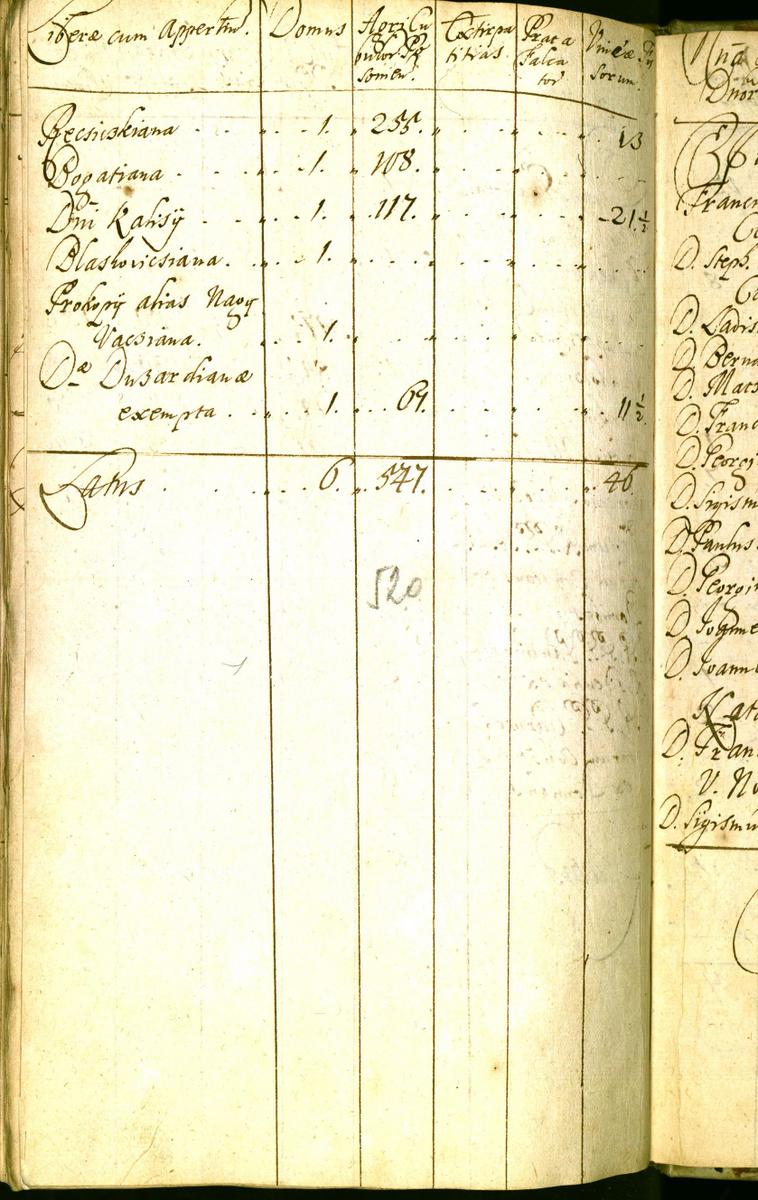 Liberæ cum Appertin. Domus Agri Cu Extirpa Prata Vineæ
titias. Falca
somen. tor sorum.
Recsicskiana 1. 255. 13
Bogatiana 1. 108.
Dni Kalisy 1. 117. 21 1/2
Blaskovicsiana. 1.
Prokopy alias Nagy
Vacsiana. 1.
Dæ Dusardianæ
exempta 1. 67. 11 1/2.
Latus 6. 547. 46
520
Dnor
Franc
D. Steph.
D. Ladis
D. Berna
D. Mat
D. Franc
D. Georg
D. Sigism
D. Paulus
D. Georgi
D. Joann
D. Fran
V. No
D. Sigismu